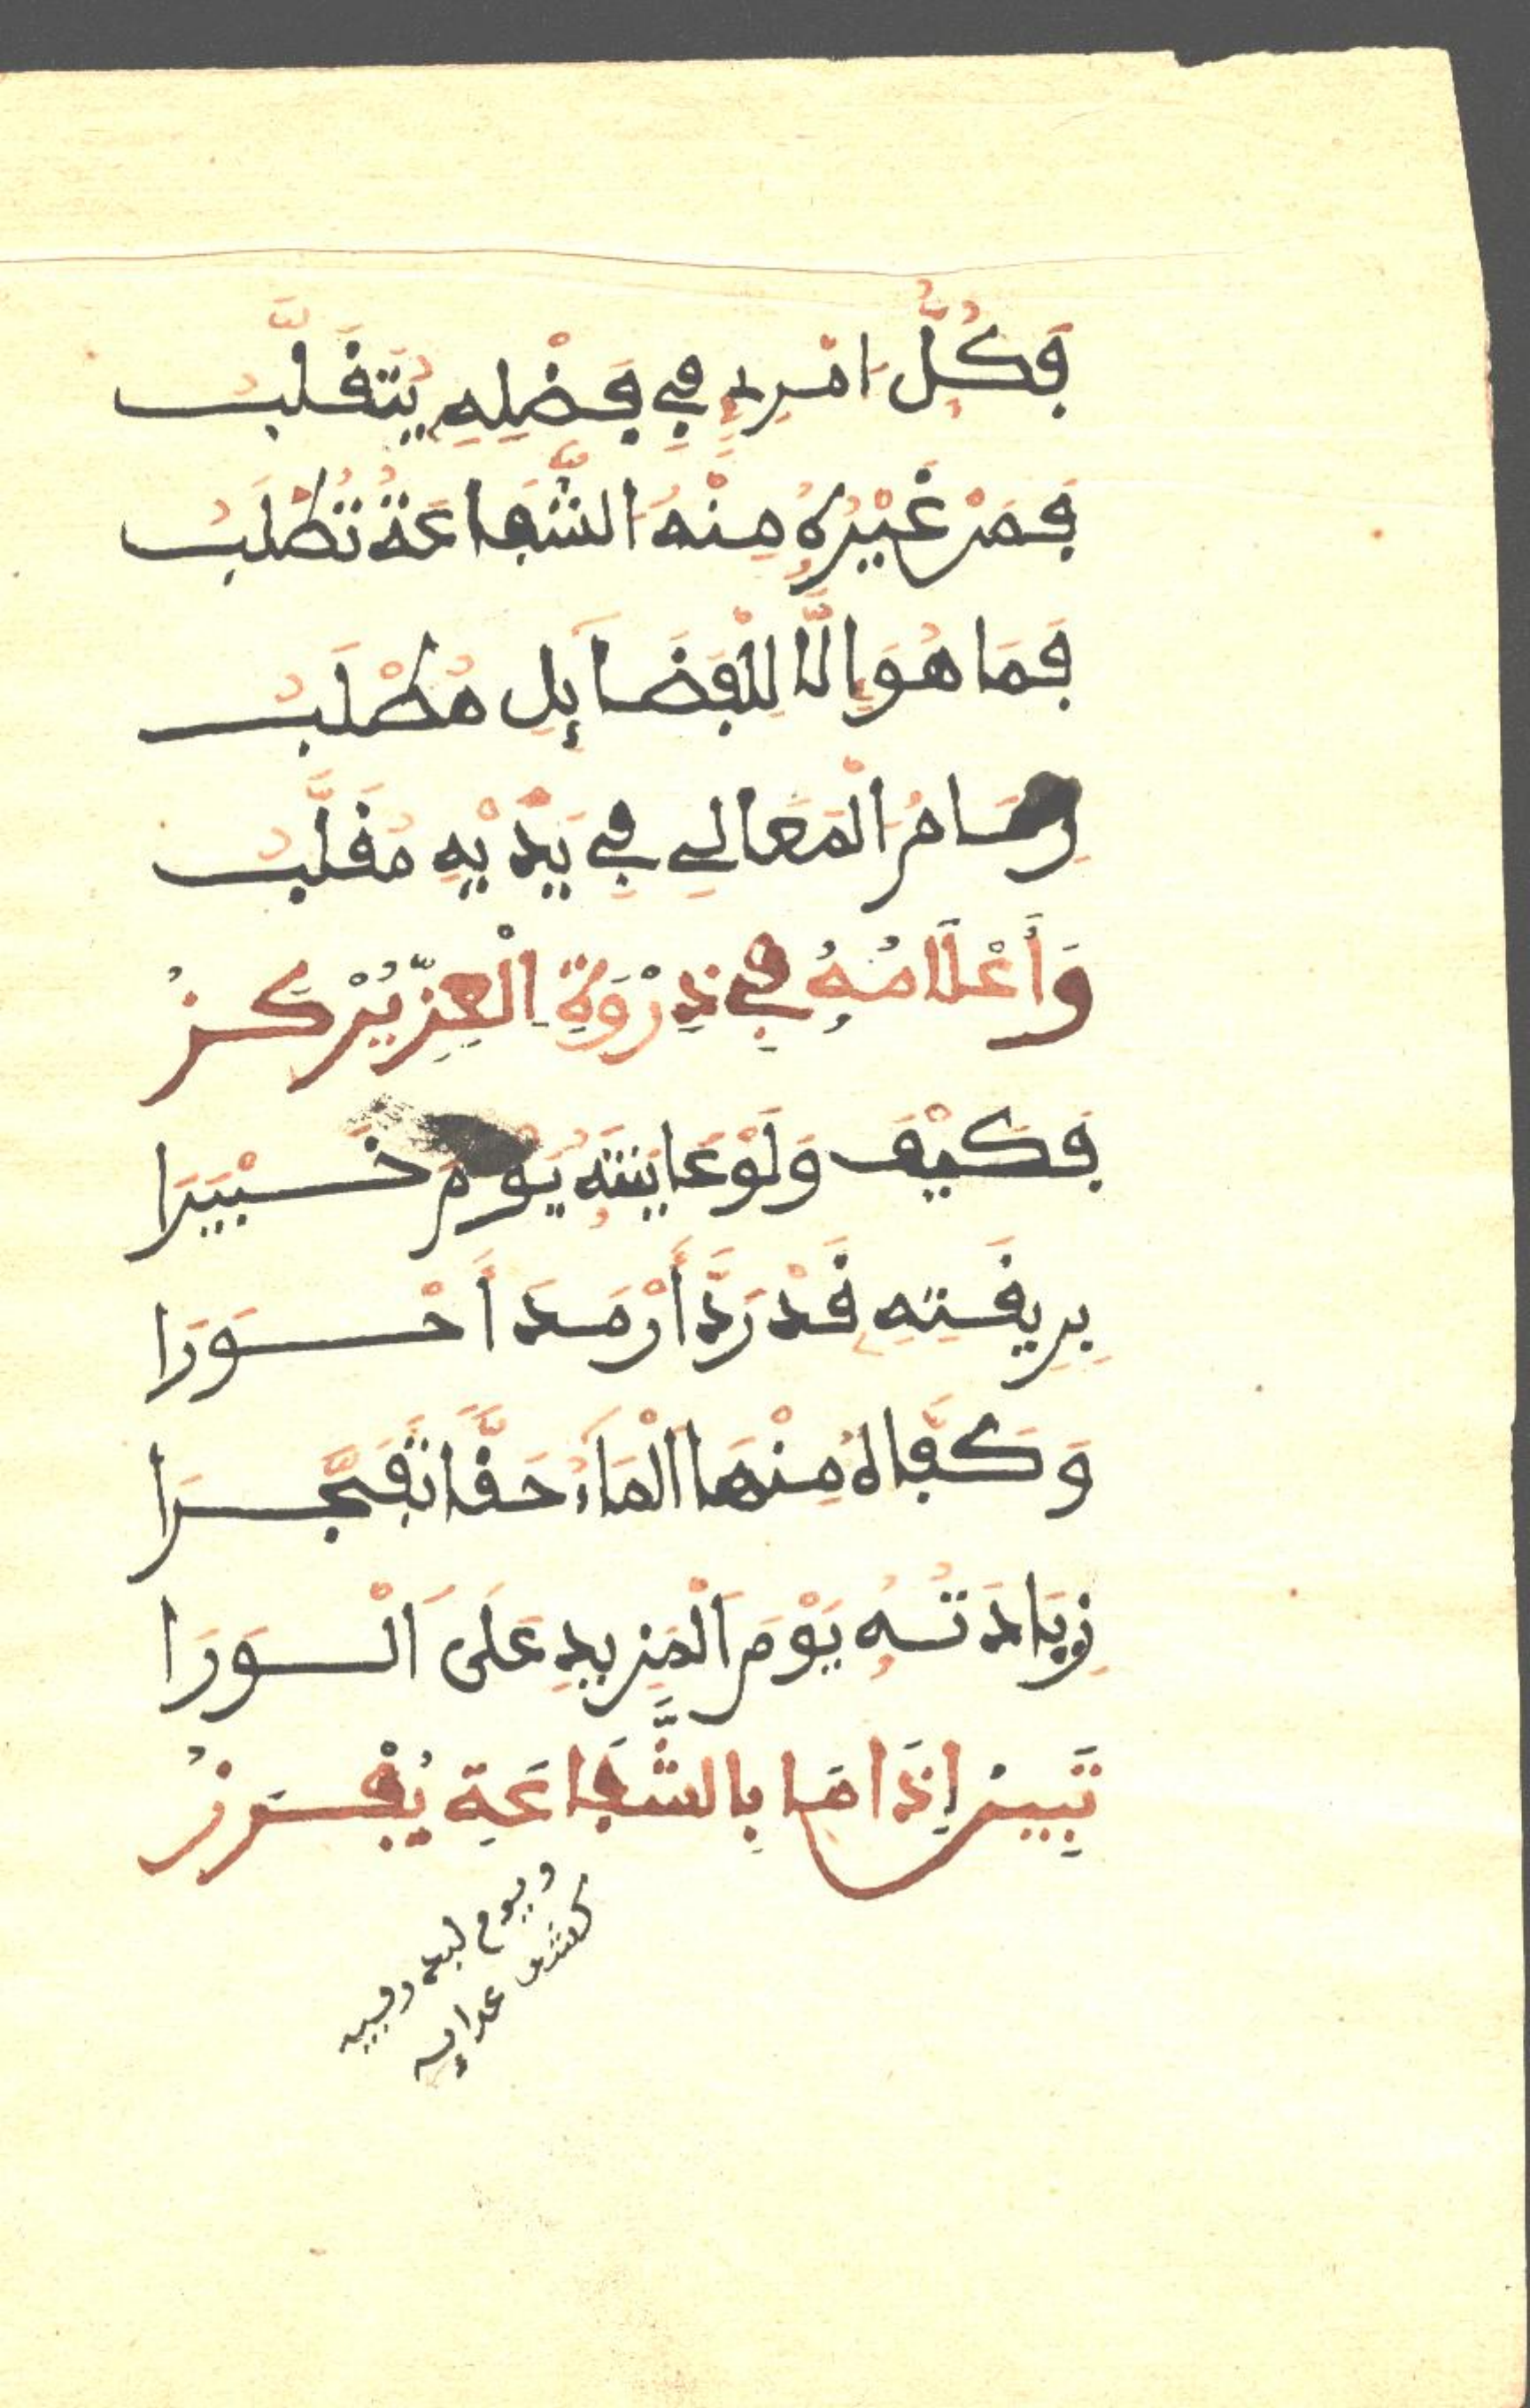 فَكُلُّ امْرِئٍ فِي فَضْلِهِ يَتَقَلَّبُ
فَمَنْ غَيْرُهُ مِنْهُ الشَّفَاعَةُ تُطْلَبُ
فَمَا هُوَ إِلَّا لِلْفَضَائِلِ مُطْلَبُ
الْمَعَالِي فِي يَدَيْهِ مُقَلَّبُ
وَأَعْلَامُهُ فِي ذِرْوَةِ الْعِزِّ يُرْكَزُ
فَكَيْفَ وَلَوْ عَايَنْتَهُ يَوْمَ خَيْبَرَا
بِرِيقَتِهِ قَدْ رَدَّ أَرْمَدَ أَحْوَرَا
وَكَفَّاهُ مِنْهَا الْمَاءُ حَقًّا تَفَجَّرَا
زِيَادَتُهُ يَوْمَ الْمَزِيدِ عَلَى الْوَرَا
تَبِينُ إِذَا مَا بِالشَّفَاعَةِ يُفْرَزُ
ويوم